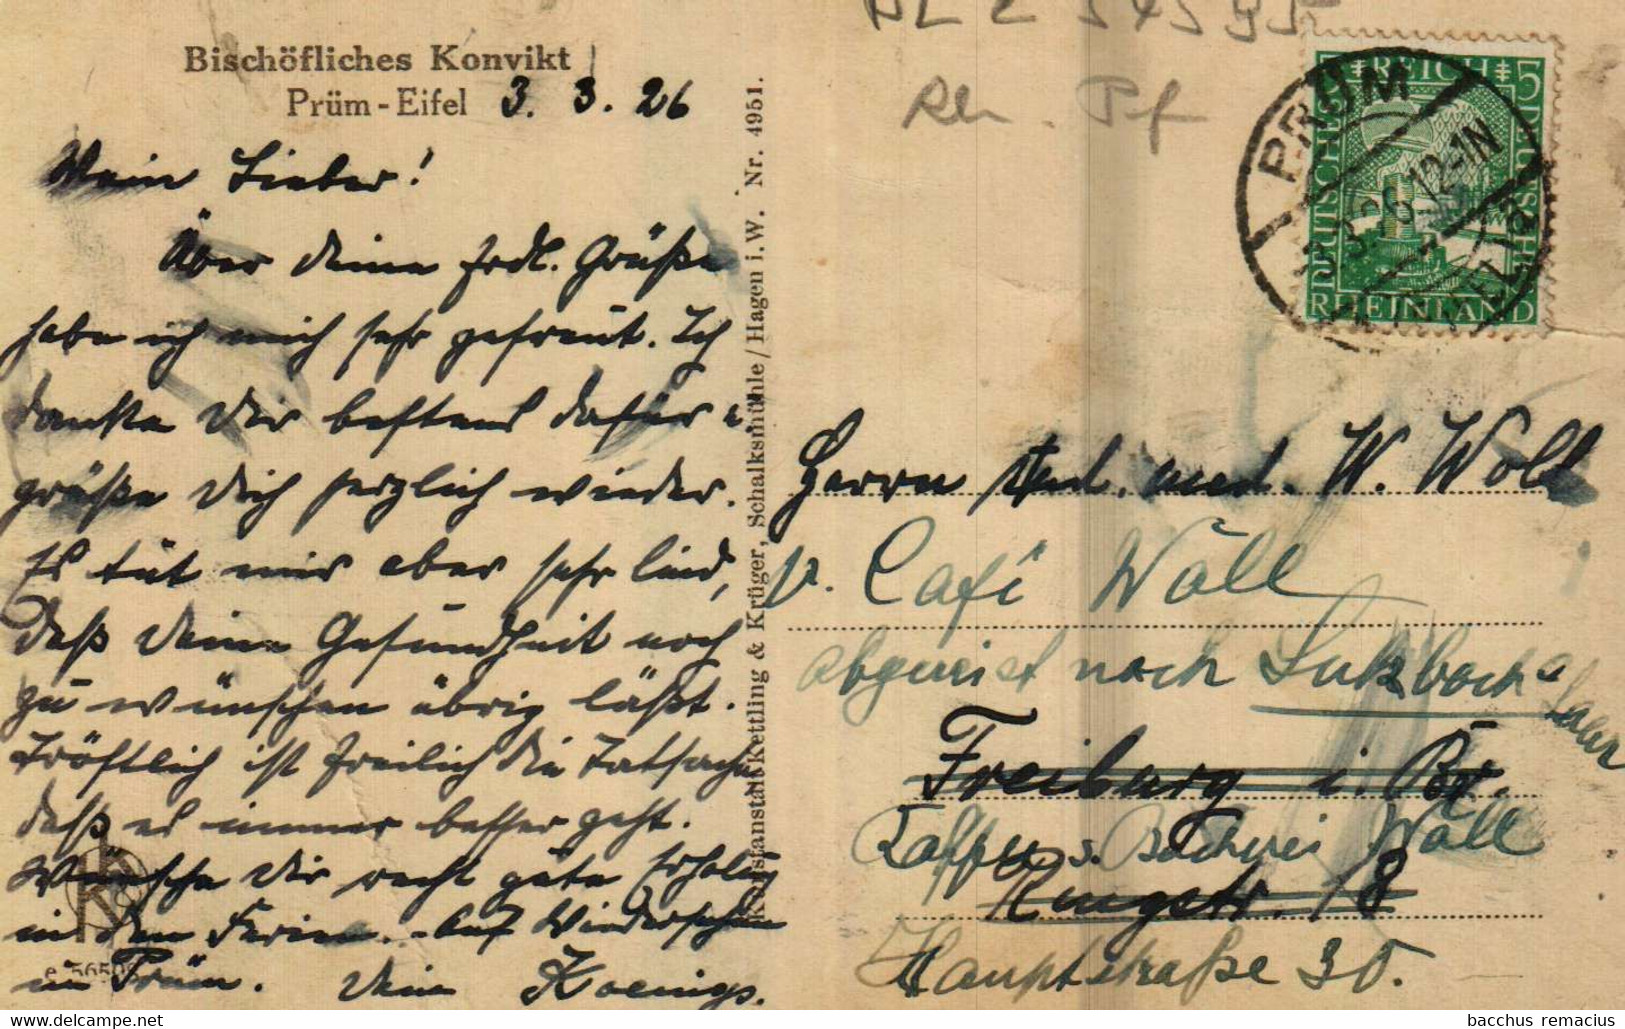 Bischöfliches Konvikt
Prüm - Eifel 3. 3. 26
Mein Lieber!
Über deine frdl. Grüße
habe ich mich sehr gefreut. Ich
danke Dir bestens dafür u.
grüße Dich herzlich wieder.
Es tut mir aber sehr leid,
daß Deine Gesundheit noch
zu wünschen übrig läßt.
Tröstlich ist freilich die Tatsache
daß es immer besser geht.
Wünsche Dir recht gute Erholung
in den Ferien. - Auf Wiedersehen
in Prüm. Dein Koenigs.
Kunstanstalt Kettling & Krüger, Schalksmühle / Hagen i. W. Nr. 4951.
Rh. Pf
DEUTSCHES REICH
5 5
RHEINLAND
PRÜM
12-1N
Herrn stud. med. W. Woll
Café Wöll
abgereist nach Sulzbach a/
Freiburg i. Br.
Bäckerei Wöll
Ringstr. 18
Hauptstraße 30.
bacchus remacius